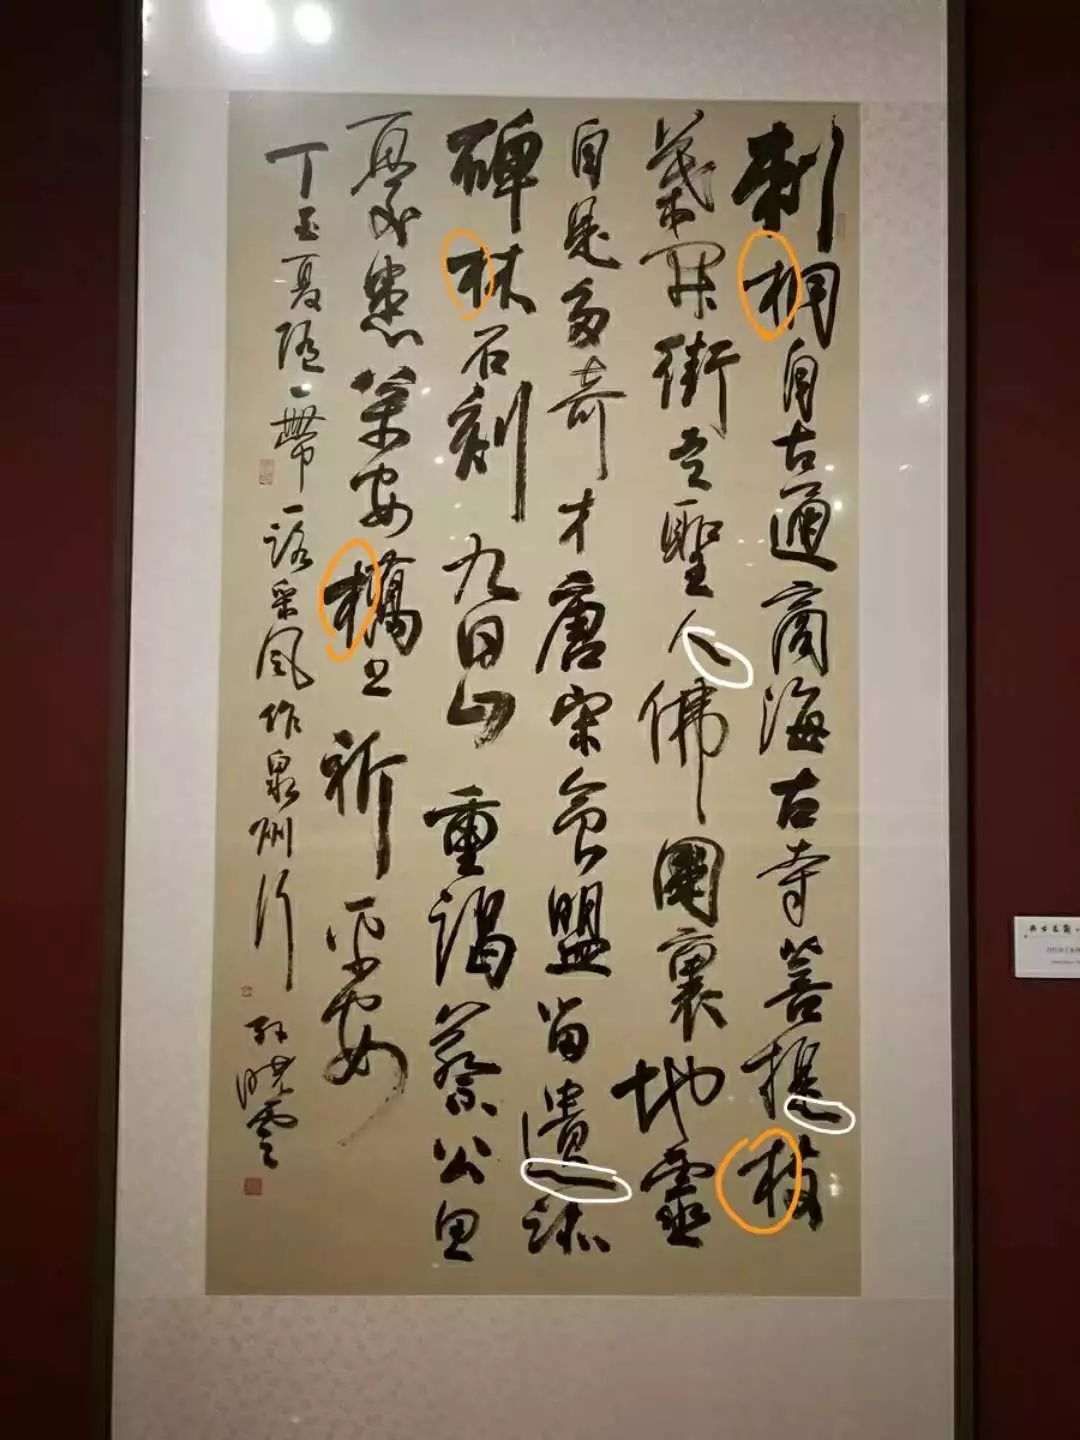 刺桐自古通商海古寺菩提枝
葉開街走聖人佛國裏地靈
自是多奇才唐宋會盟留遺跡
碑林石刻九日山重謁蔡公思
憂患萬安橋上祈平安
丁酉夏隨一帶一路采風作泉州行
孫曉雲